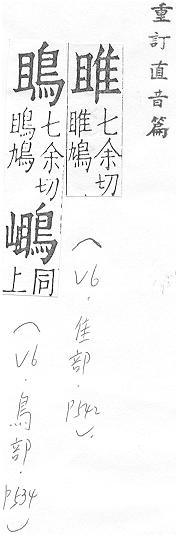 重訂直音篇
雎
七余切
雎鳩
(V6.隹部.P542).
鴡
七余切
鴡鳩
同上
(V6.鳥部.P534)